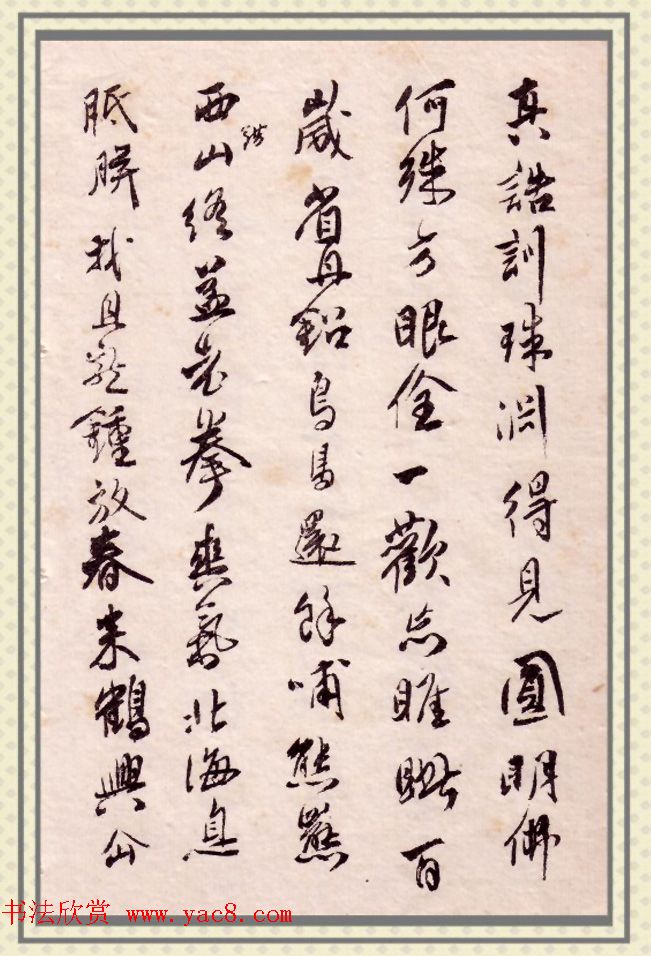 真誥訓珠淵得見圓明佛
何殊方眼佺一歡忘睢盱百
歲省丹鉛烏焉還餘哺熊羆
西山終益老拳爽氣北海息
胝胼找且歌鍾放春来鶴興
书法欣赏 www.yac8.com